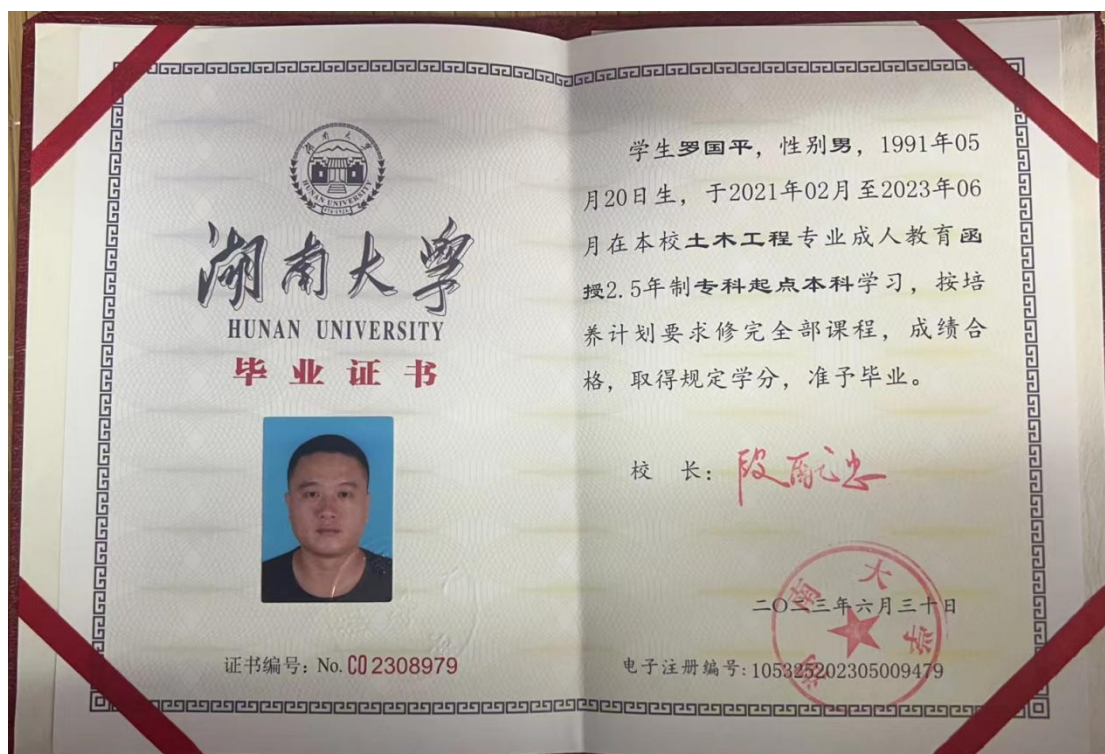 湖南大学
HUNAN UNIVERSITY
湖南大学
HUNAN UNIVERSITY
毕业证书
证书编号: No. C02308979
学生罗国平, 性别男, 1991年05
月20日生, 于2021年02月至2023年06
月在本校土木工程专业成人教育函
授2.5年制专科起点本科学习, 按培
养计划要求修完全部课程, 成绩合
格, 取得规定学分, 准予毕业。
校 长: 段献忠
湖南大学
二〇二三年六月三十日
电子注册编号: 105325202305009479